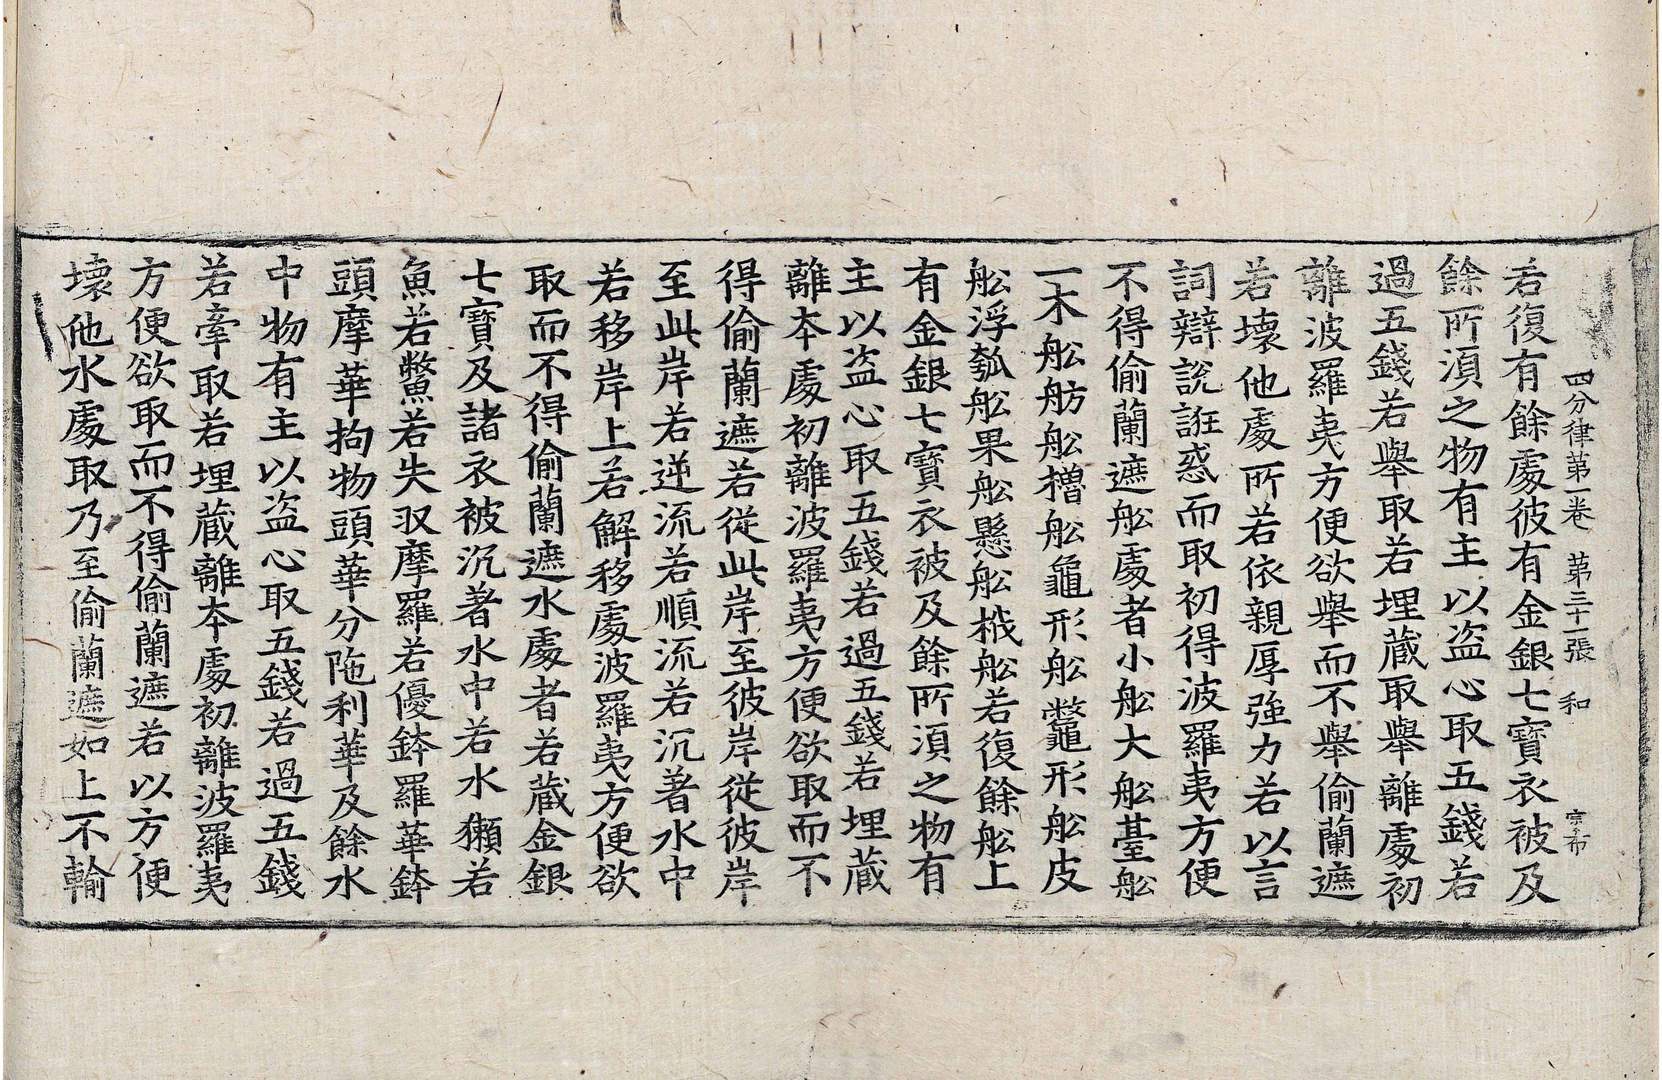 四分律第一卷 第三十一張 和 宗布
若復有餘處彼有金銀七寶衣被及
餘所湏之物有主以盗心取五錢若
過五錢若舉取若埋蔵取舉離處初
離波羅夷方便欲舉而不舉偷蘭遮
若壞他處所若依親厚強力若以言
詞辯說誑惑而取初得波羅夷方便
不得偷蘭遮舩處者小舩大舩臺舩
一木舩舫舩櫓舩龜形舩鼈形舩皮
舩浮瓠舩果舩懸舩栰舩若復餘舩上
有金銀七寶衣被及餘所湏之物有
主以盗心取五錢若過五錢若埋蔵
離本處初離波羅夷方便欲取而不
得偷蘭遮若從此岸至彼岸從彼岸
至此岸若逆流若順流若沉著水中
若移岸上若解移處波羅夷方便欲
取而不得偷蘭遮水處者若蔵金銀
七寶及諸衣被沉著水中若水獺若
魚若鱉若失収摩羅若優鉢羅華鉢
頭摩華拘物頭華分陁利華及餘水
中物有主以盗心取五錢若過五錢
若牽取若埋蔵離本處初離波羅夷
方便欲取而不得偷蘭遮若以方便
壞他水處取乃至偷蘭遮如上不輸